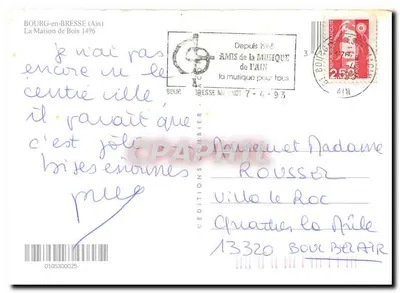 BOURG-en-BRESSE (Ain)
La Maison de Bois 1496
je n'ai pas
encore vu le
centre ville
il parait que
c'est joli
bises enormes
Depuis
AMIS de la MUSIQUE
de l'AIN
la musique pour tous
7-4-93
2,50
EDITIONS
CPARAMA
Monsieur et Madame
ROUSSEL
Villa le Roc
Quartier la Mûle
13320 BOUC BEL AIR
0105000025